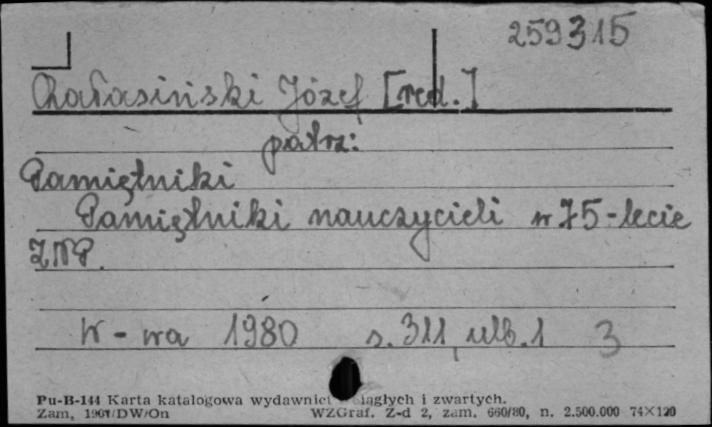 259315
Chałasiński Józef [red.]
patrz:
Pamiętniki
Pamiętniki nauczycieli w 75-lecie
ZNP.
W-wa 1980 s. 311, ulb. 1 3
Pu-B-144 Karta katalogowa wydawnict ciągłych i zwartych.
Zam. 1901/DW/On WZGraf. Z-d 2, zam. 660/80, n. 2.500.000 74×120